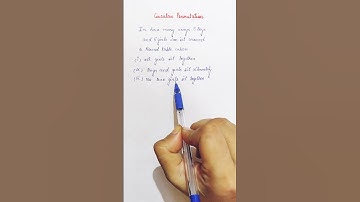 Circular Permutation
In how many ways 5 boys
and 5 girls can sit around
a Round table when
(i) all girls sit together
(ii) Boys and girls sit alternately
(iii) No two girls sit together